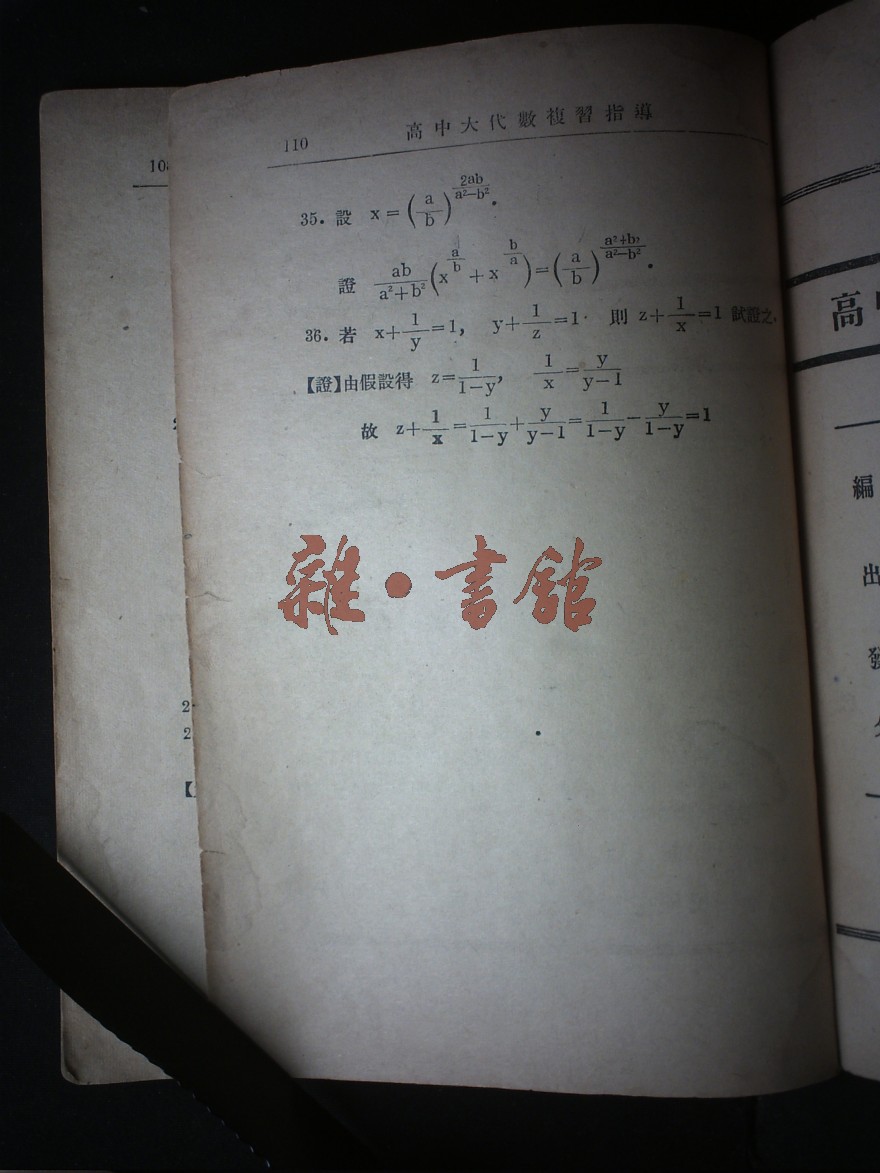 110 高中大代數複習指導
35. 設 x = (a/b)^(2ab/(a²−b²)).
證 ab/(a²+b²) (x^(a/b) + x^(b/a)) = (a/b)^((a²+b²)/(a²−b²)).
36. 若 x+1/y=1, y+1/z=1. 則 z+1/x=1 試證之.
【證】由假設得 z=1/(1−y), 1/x=y/(y−1)
故 z+1/x=1/(1−y)+y/(y−1)=1/(1−y)−y/(1−y)=1
雜·書館
10
2
2
【
高
編
出
發